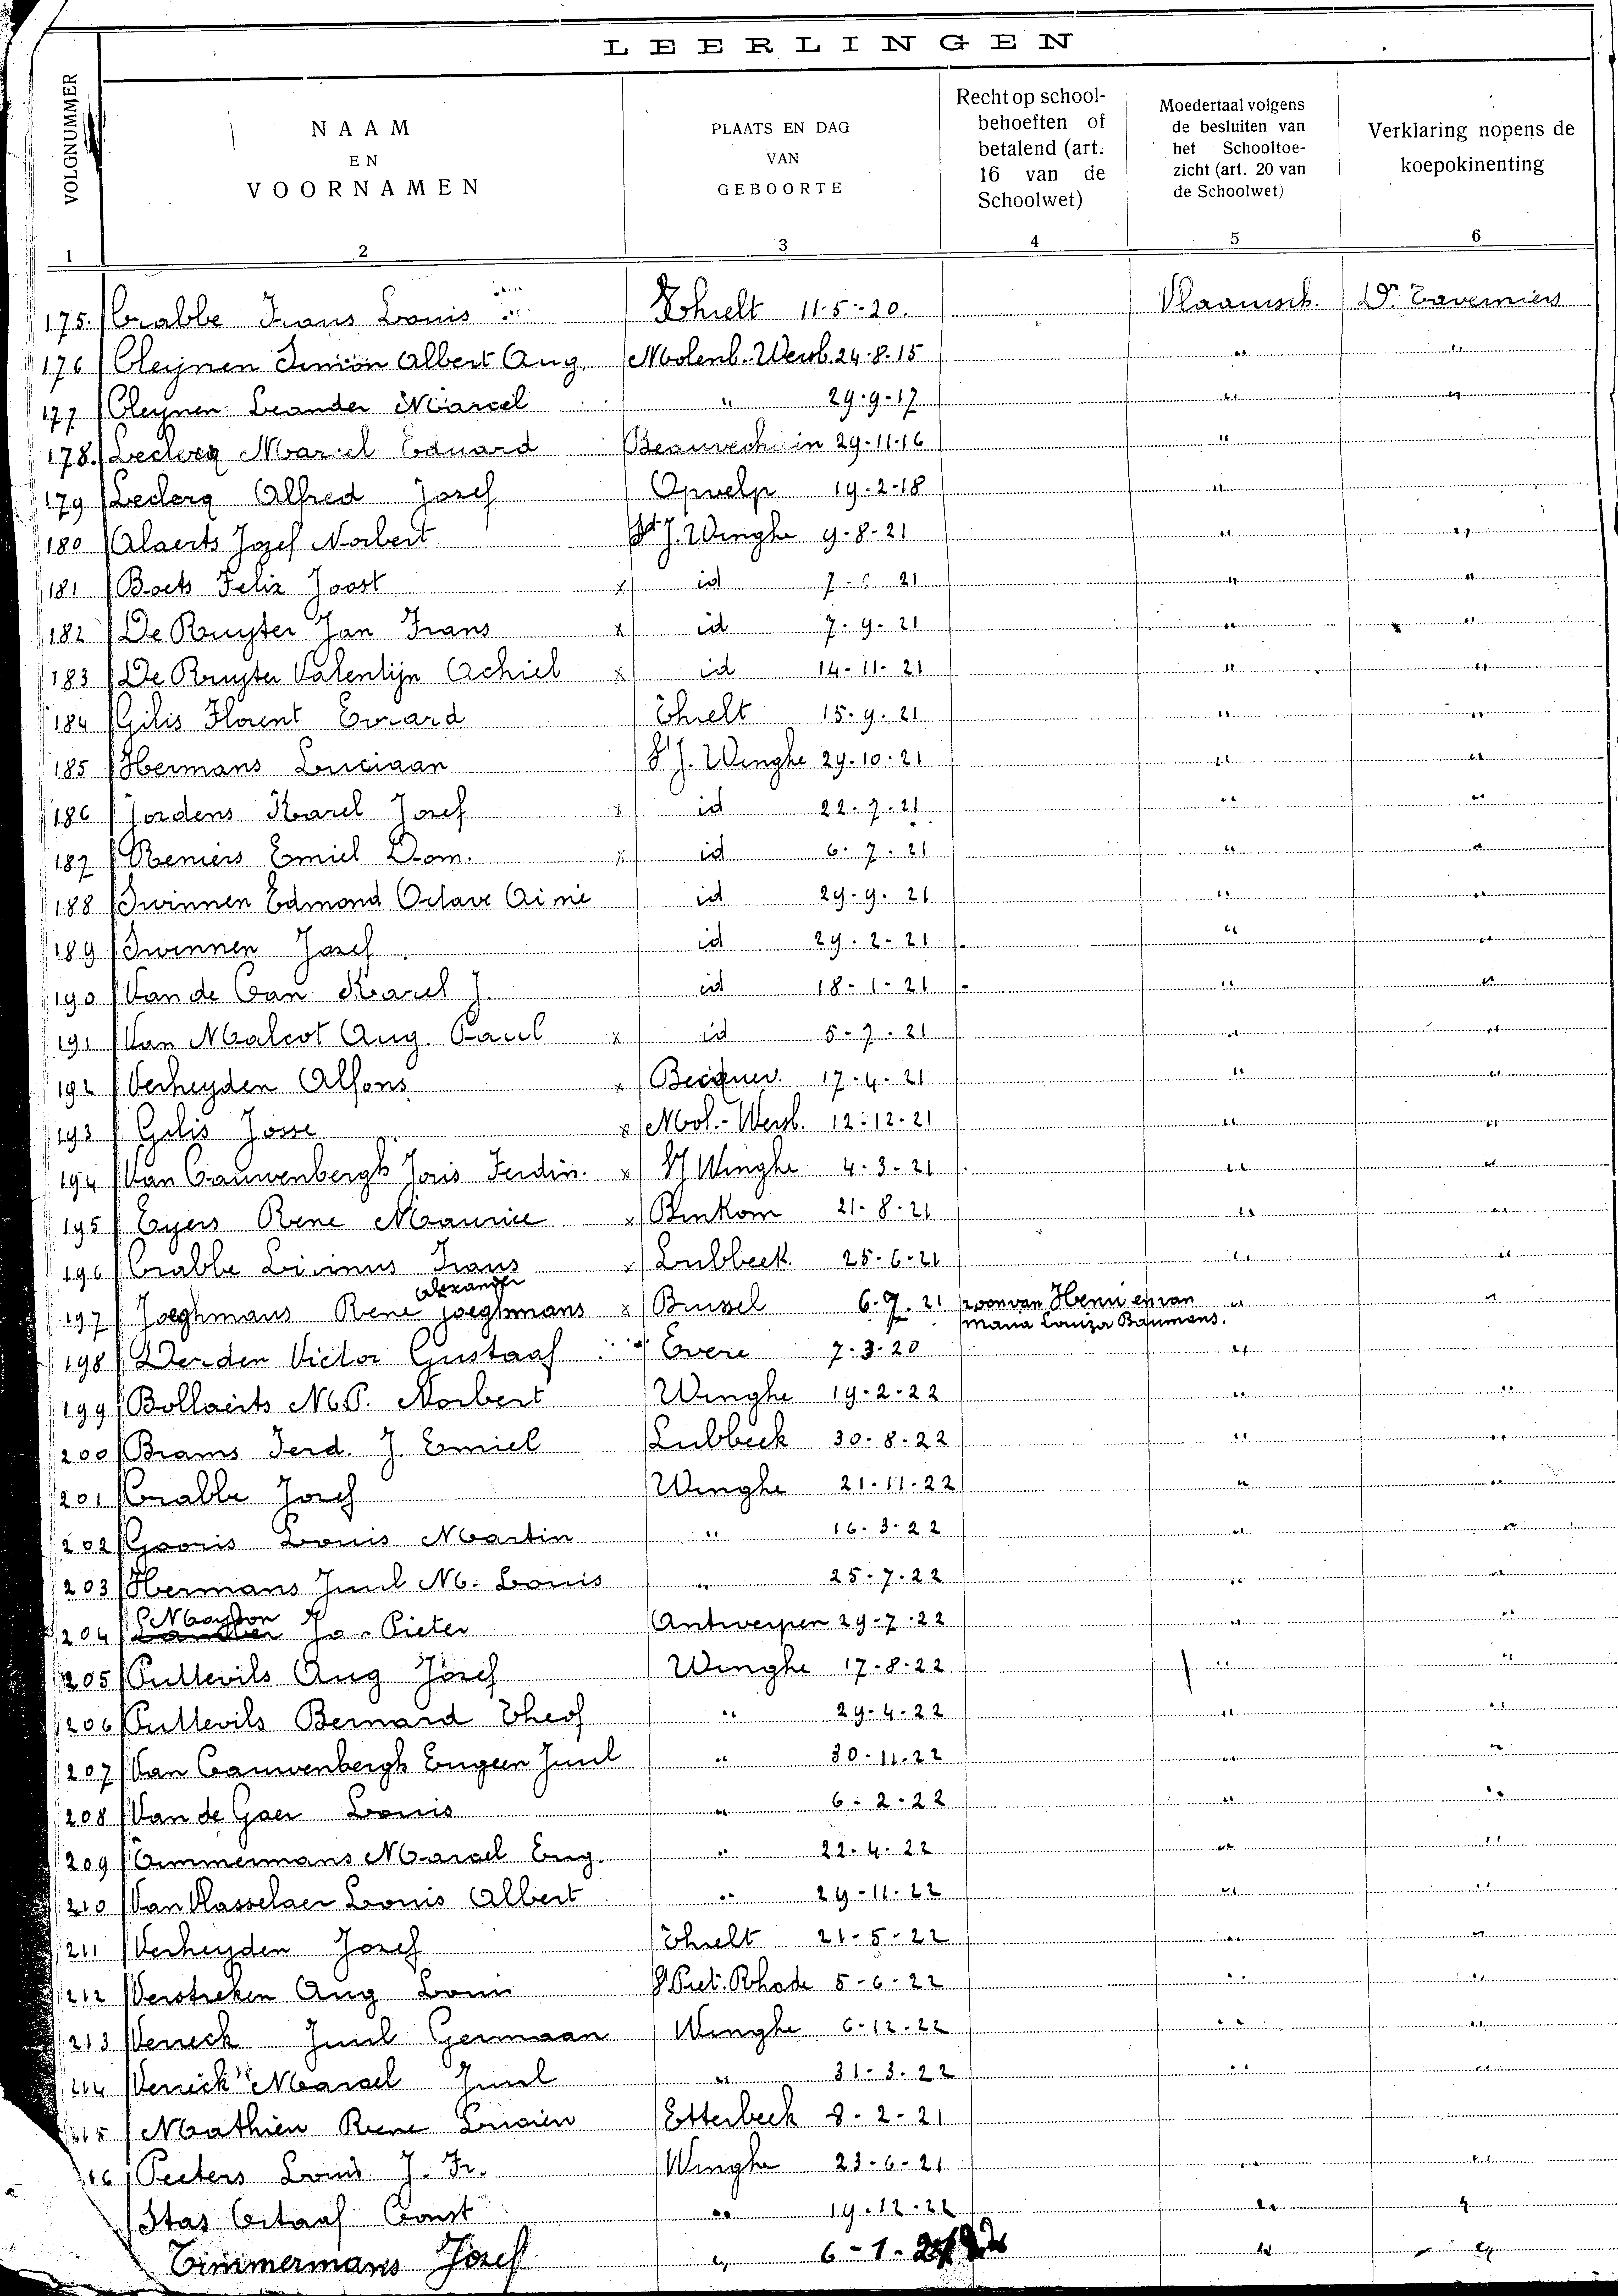 LEERLINGEN
VOLGNUMMER
NAAM
EN
VOORNAMEN
PLAATS EN DAG
VAN
GEBOORTE
Recht op school-
behoeften of
betalend (art.
16 van de
Schoolwet)
Moedertaal volgens
de besluiten van
het Schooltoe-
zicht (art. 20 van
de Schoolwet)
Verklaring nopens de
koepokinenting
1 2 3 4 5 6
175. Crabbe Frans Louis Thielt 11-5-20. Vlaamsch. Dr. Taverniers
176 Cleynen Simon Albert Aug. Molenb.-Wersb. 24-8-15 " "
177 Cleynen Leander Marcel " 29-9-17 " "
178. Leclercq Marcel Eduard Beauvechain 29-11-16 "
179 Leclerq Alfred Josef Opvelp 19-2-18 "
180 Alaerts Jozef Norbert St J. Winghe 9-8-21 " "
181 Boets Felix Joost x id 7- 21 " "
182 De Ruyter Jan Frans x id 7-9-21 " "
183 De Ruyter Valentijn Achiel x id 14-11-21 " "
184 Gilis Florent Evrard Thielt 15-9-21 " "
185 Hermans Luciaan St J. Winghe 29-10-21 " "
186 Jordens Karel Josef x id 22-7-21 " "
187 Reniers Emiel Dom. x id 6-7-21 " "
188 Swinnen Edmond Octave Aimé id 29-9-21 " "
189 Swinnen Josef id 29-2-21 " "
190 Van de Karel J. id 18-1-21 " "
191 Van Malcot Aug. Paul x id 5-7-21 " "
192 Verheyden Alfons x 17-4-21 " "
193 Gilis Josse x Mol.-Wersb. 12-12-21 " "
194 Van Cauwenbergh Joris Ferdin. x St J Winghe 4-3-21 " "
195 Eyers Rene Maurice x Binkom 21-8-21 " "
196 Crabbe Livinus Frans x Lubbeek 25-6-21 " "
Alexander
197 Joeghmans Rene Joeghmans x Brussel 6.7.21 zoon van Henri en van " "
Maria Louiza Baumans.
198 Derden Victor Gustaaf Evere 7-3-20 "
199 Bollaerts M.P. Norbert Winghe 19-2-22 " "
200 Brams Ferd. J. Emiel Lubbeek 30-8-22 " "
201 Crabbe Josef Winghe 21-11-22 " "
202 Gooris Louis Martin " 16-3-22 " "
203 Hermans Juul M. Louis " 25-7-22 " "
204 Pieter Antwerpen 29-7-22 " "
205 Pullevils Aug Josef Winghe 17-8-22 " "
206 Pullevils Bernard Theof " 29-4-22 " "
207 Van Cauwenbergh Eugeen Juul " 30-11-22 " "
208 Van de Gaer Louis " 6-2-22 " "
209 Timmermans Marcel Eug. " 22-4-22 " "
210 Van Hasselaer Louis Albert " 29-11-22 " "
211 Verheyden Josef Thielt 21-5-22 " "
212 Verstreken Aug Louis St Piet. Rhode 5-6-22 " "
213 Vereeck Juul Germaan Winghe 6-12-22 " "
214 Vereeck Marcel Juul " 31-3-22 " "
215 Mathieu Rene Lucien Etterbeek 8-2-21
216 Peeters Louis J. Fr. Winghe 23-6-21 " "
Stas Octaaf Const " 19-12-22 " "
Timmermans Josef " 6-1- " "